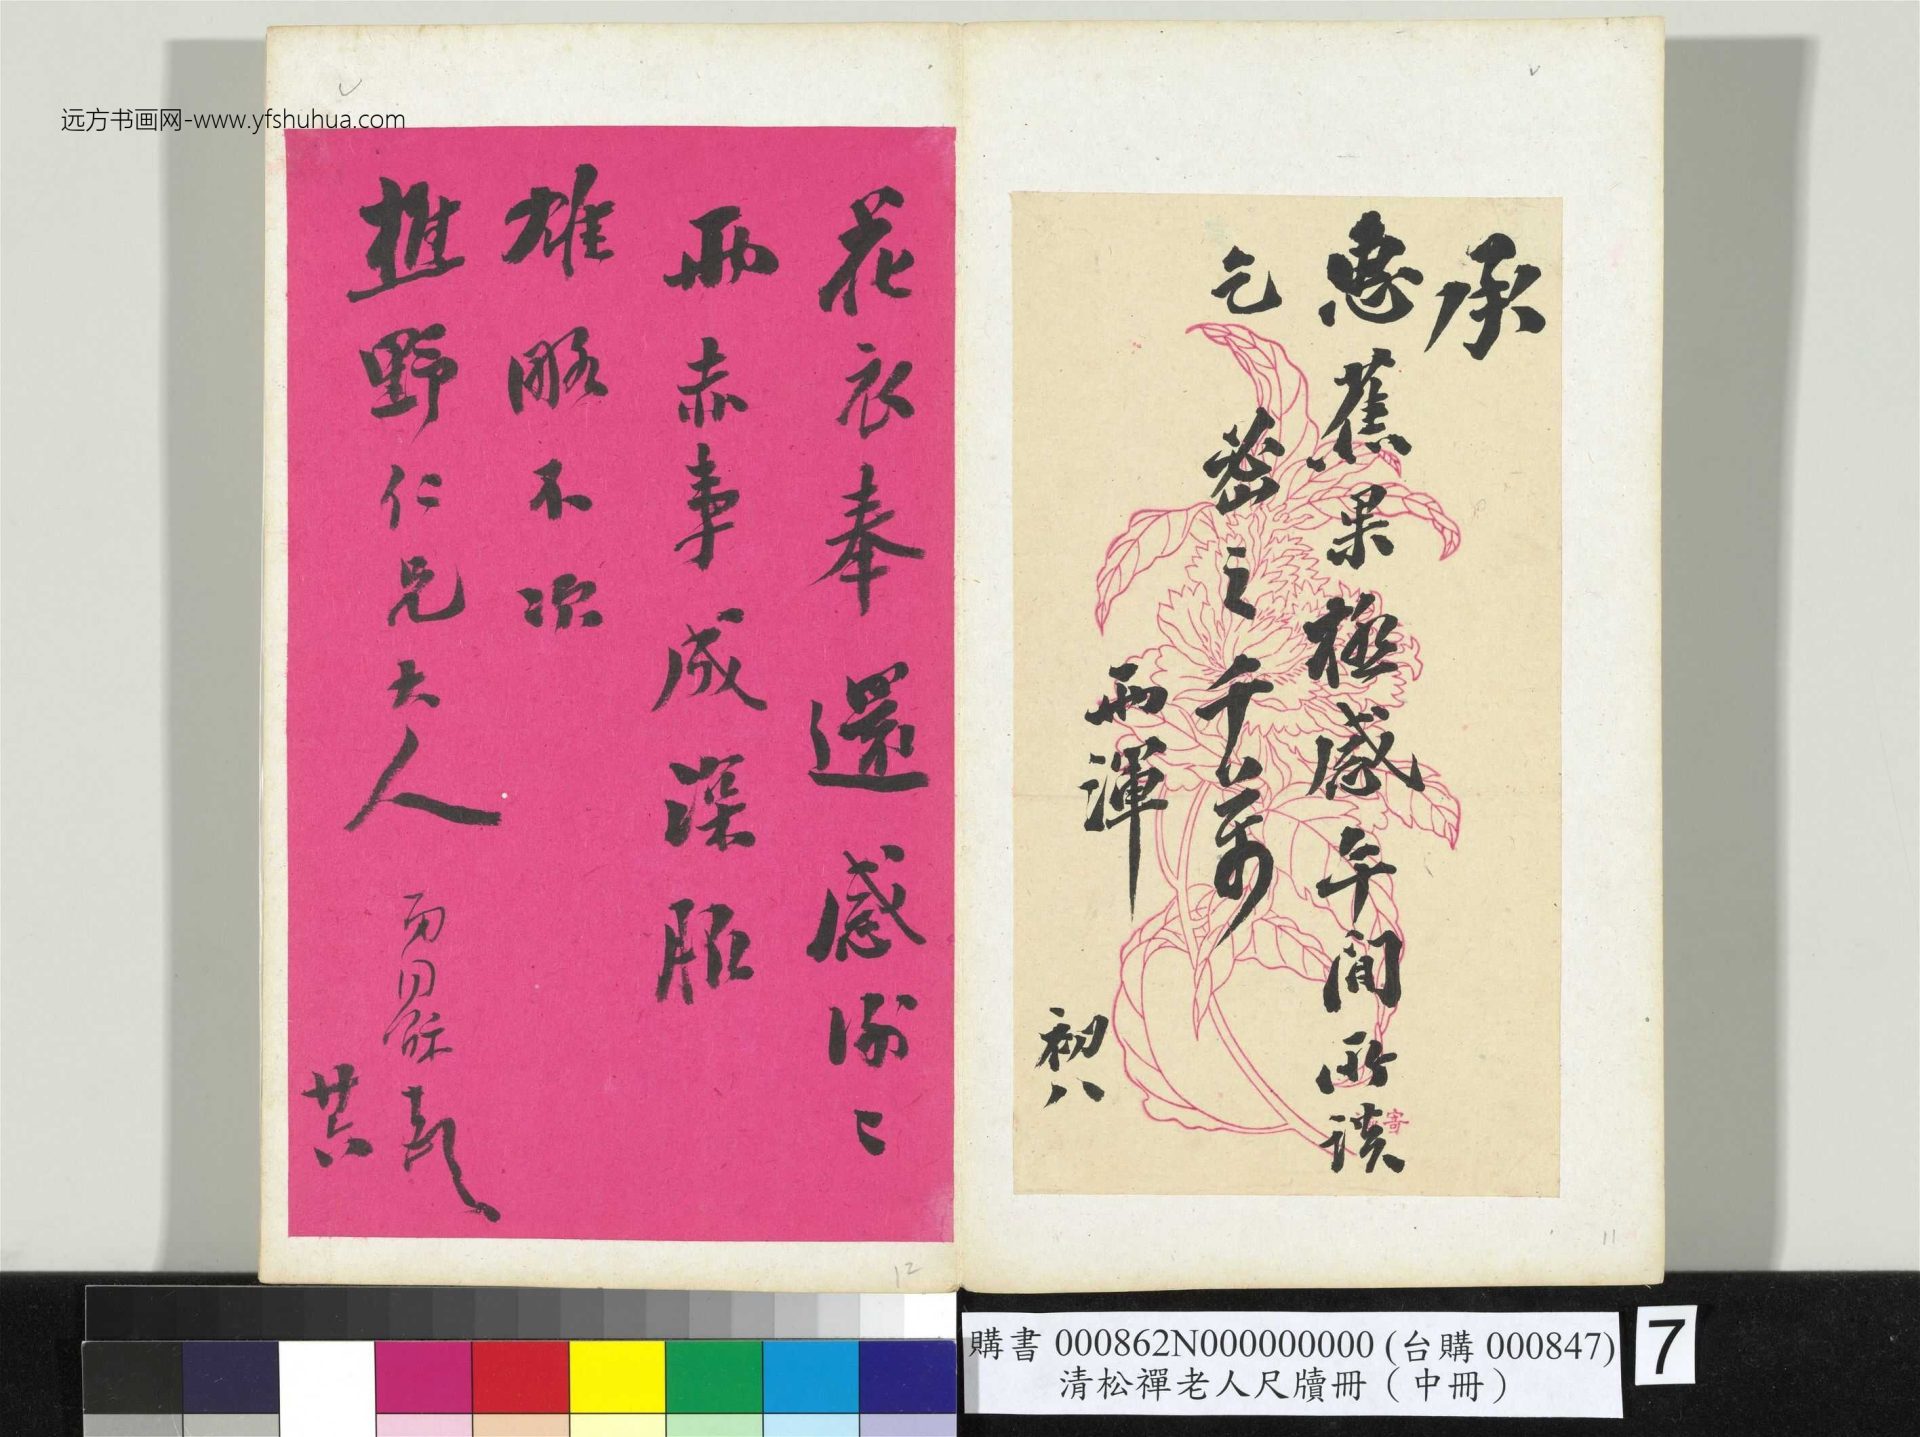 远方书画网-www.yfshuhua.com
承
惠蕉果極感午間所談
乞密之千萬
兩渾
初八
寄
11
花衣奉還感謝〻
兩赤事咸深
雄略不次
樵野仁兄大人
廿六
12
購書 000862N000000000 (台購 000847)
清松禪老人尺牘冊（中冊）
7